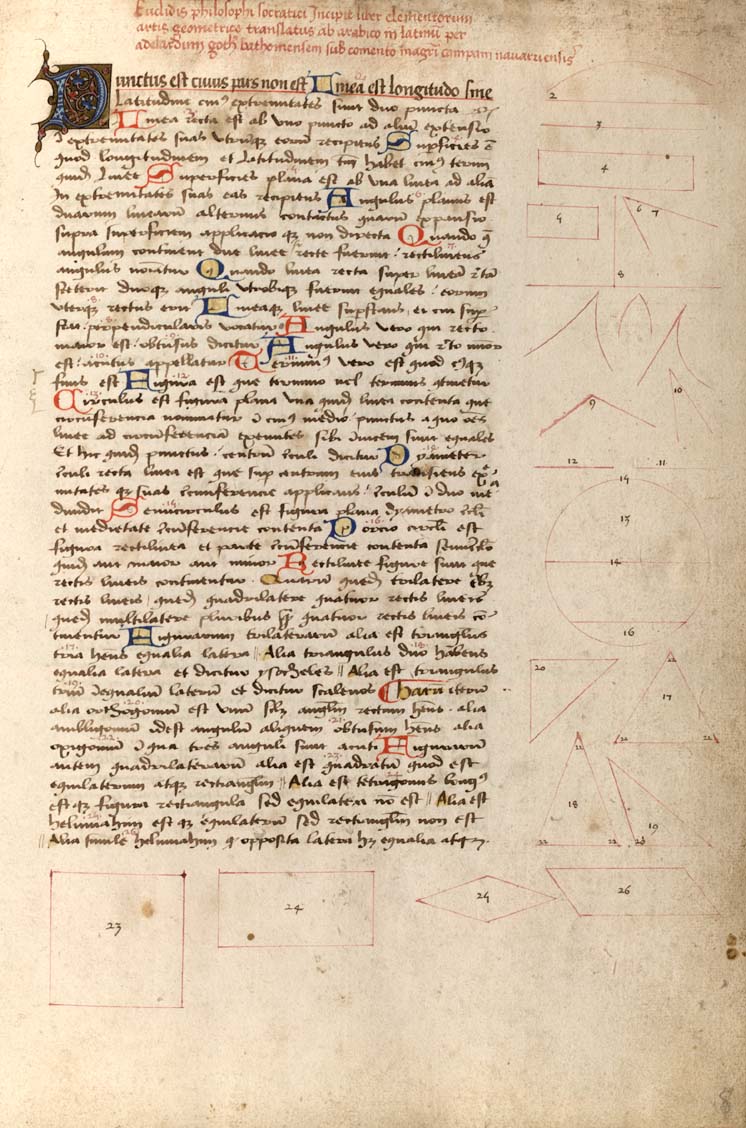 Euclidis philosophi socratici Incipit liber elementorum
artis geometrice translatus ab arabico in latinu per
adelardum goth bathoniensem sub comento magri campani navarriensis
Punctus est cuius pars non est Linea est longitudo sine
Latitudine cuius extremitates sunt duo puncta
Linea recta est ab uno puncto ad aliu extensio
I extremitates suas utrumque eorum recipiens Supficies e
quod longitudinem et latitudinem tm habet cuius termini
quide linee Superficies plana est ab una linea ad alia
In extremitates suas eas recipiens Angulus planus est
duarum linearum alternus contactus quarum expansio
supra superficiem applicatio qz non directa Quando q
angulum continent due linee recte fuerint rectilineus
angulus noiatur Quando linea recta super linea rta
steterit duoqz anguli utrobiqz fuerint equales eorum
uterqz rectus erit Lineaqz linee supstans ei cui sup
stat perpendicularis vocatur Angulus vero qui recto
maior est obtusus dicitur Angulus vero qui rto minor
est acutus appellatur Terminus vero est quod
finis est Figura est que termino vel terminis
Circulus est figura plana una quid linea contenta que
circunferencia nominatur i cuius medio punctus a quo oes
linee ad circunferencia exeuntes sibi invicem sunt equales
Et hic quid punctus centru dicitur Dyameter
recta linea est que sup centrum eius transiens
mitates qz suas applicans i duo me
dividit Semicirculus est figura plana dyametro
et medietate contenta Portio circli est
figura rectilinea et parte contenta
quid aut maior aut minor Rectilinee figure sunt que
rectis lineis continentur Quarum qued trilatere
rectis lineis qued quadrilatere quatuor rectis lineis
qued multilatere pluribus quatuor rectis lineis co
tinentur Figurarum trilaterarum alia est triangulus
tria hens equalia latera Alia triangulus duo habens
equalia latera et dicitur ysocheles Alia est triangulus
trium inequaliu laterum et dicitur scalenos Haru iterum
alia orthogonium est unum angulu rectum hens alia
ambligonium idest angulum aliquem obtusum hens alia
oxigonium i qua tres anguli sunt acuti Figurarum
autem quadrilaterarum alia est quadratu quod est
equilaterum atqz rectangulm Alia est tetragonus longus
est qz figura rectangula sed equilatera no est Alia est
helmuahym est qz equilaterum sed rectangulm non est
Alia simile helmuahym q opposita latera hz equalia atqz
2
3
4
4
6 7
8
9
10
11
12
14
13
14
16
20
17
18
19
23
24
24
26
8